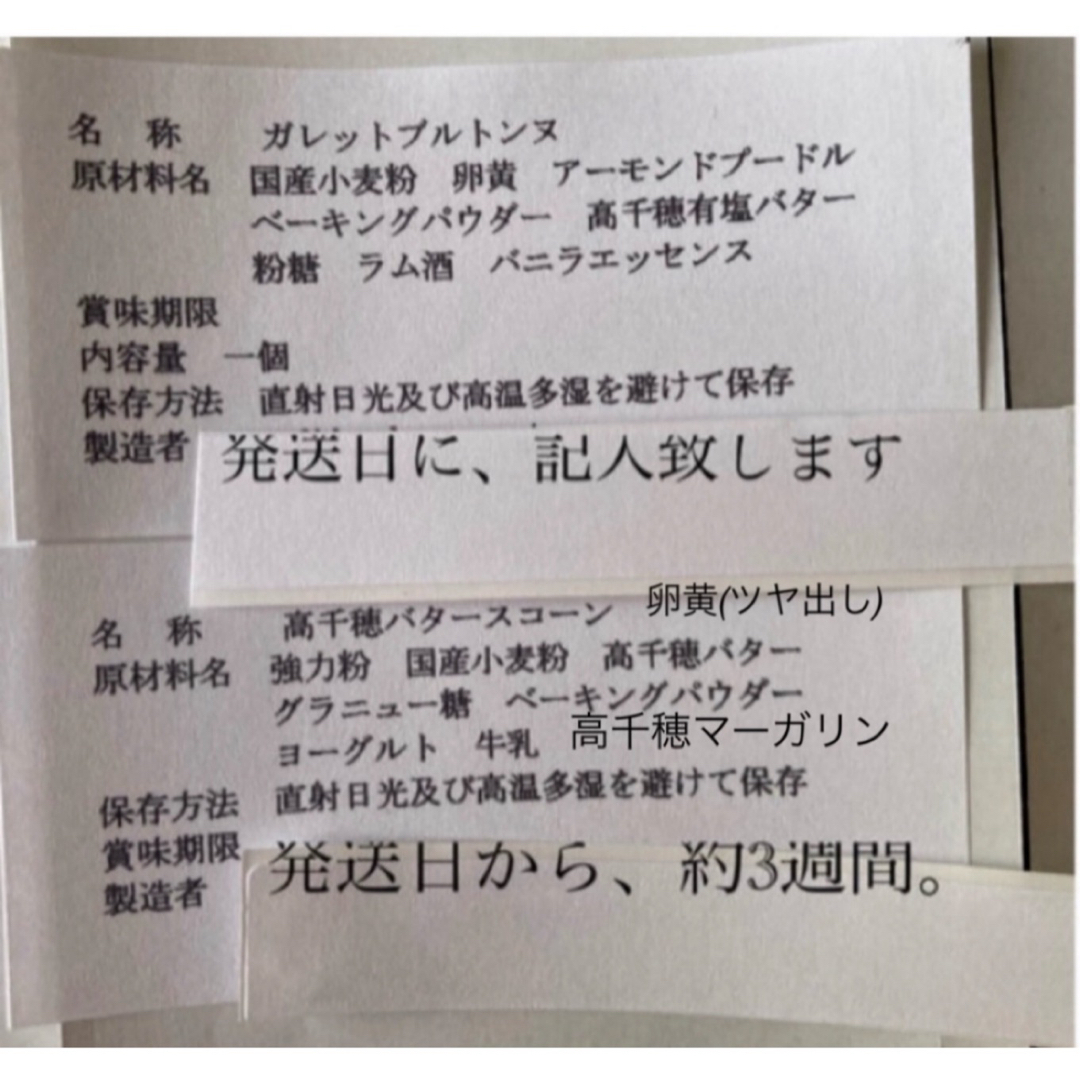 名 称 ガレットブルトンヌ
原材料名 国産小麦粉 卵黄 アーモンドプードル
ベーキングパウダー 高千穂有塩バター
粉糖 ラム酒 バニラエッセンス
賞味期限
内容量 一個
保存方法 直射日光及び高温多湿を避けて保存
製造者
発送日に、記入致します
卵黄(ツヤ出し)
名 称 高千穂バタースコーン
原材料名 強力粉 国産小麦粉 高千穂バター
グラニュー糖 ベーキングパウダー
ヨーグルト 牛乳 高千穂マーガリン
保存方法 直射日光及び高温多湿を避けて保存
賞味期限
発送日から、約3週間。
製造者